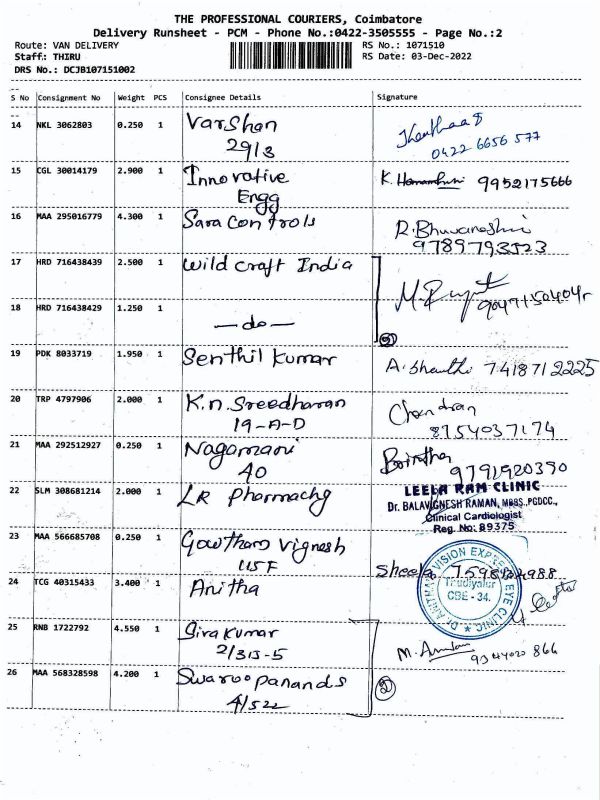 THE PROFESSIONAL COURIERS, Coimbatore
Delivery Runsheet - PCM - Phone No.:0422-3505555 - Page No.:2
Route: VAN DELIVERY RS No.: 1071510
Staff.: THIRU RS Date: 03-Dec-2022
DRS No.: DCJB107151002
S No Consignment No Weight PCS Consignee Details Signature
14 NKL 3062803 0.250 1 Varshan
29/3
0422 6656 577
15 CGL 30014179 2.900 1 Innovative K. 9952175666
Engg
16 MAA 295016779 4.300 1 Sara Controls R. Bhuvaneshwi
9789793523
17 HRD 716438439 2.500 1 Wild craft India
18 HRD 716438429 1.250 1 —do— ②
19 PDK 8033719 1.950 1 Senthil Kumar A. Shanthi 7418712225
20 TRP 4797906 2.000 1 K.n. Sreedharan Chandran
19-A-D 8754037174
21 MAA 292512927 0.250 1 Nagamani Brintha
40 9791920390
22 SLM 308681214 2.000 1 LR Pharmachy LEELA RAM CLINIC
Dr. BALAVIGNESH RAMAN, MBBS.,PGDCC.,
Clinical Cardiologist
Reg. No: 89375
23 MAA 566685708 0.250 1 Gowtham Vignesh
115 F
24 TCG 40315433 3.400 1 Anitha VISION EXPRESS EYE CLINIC
Thudiyalur
CBE - 34.
25 RNB 1722792 4.550 1 Sivakumar
2/313-5
26 MAA 568328598 4.200 1 Swaroopanands ②
4/522